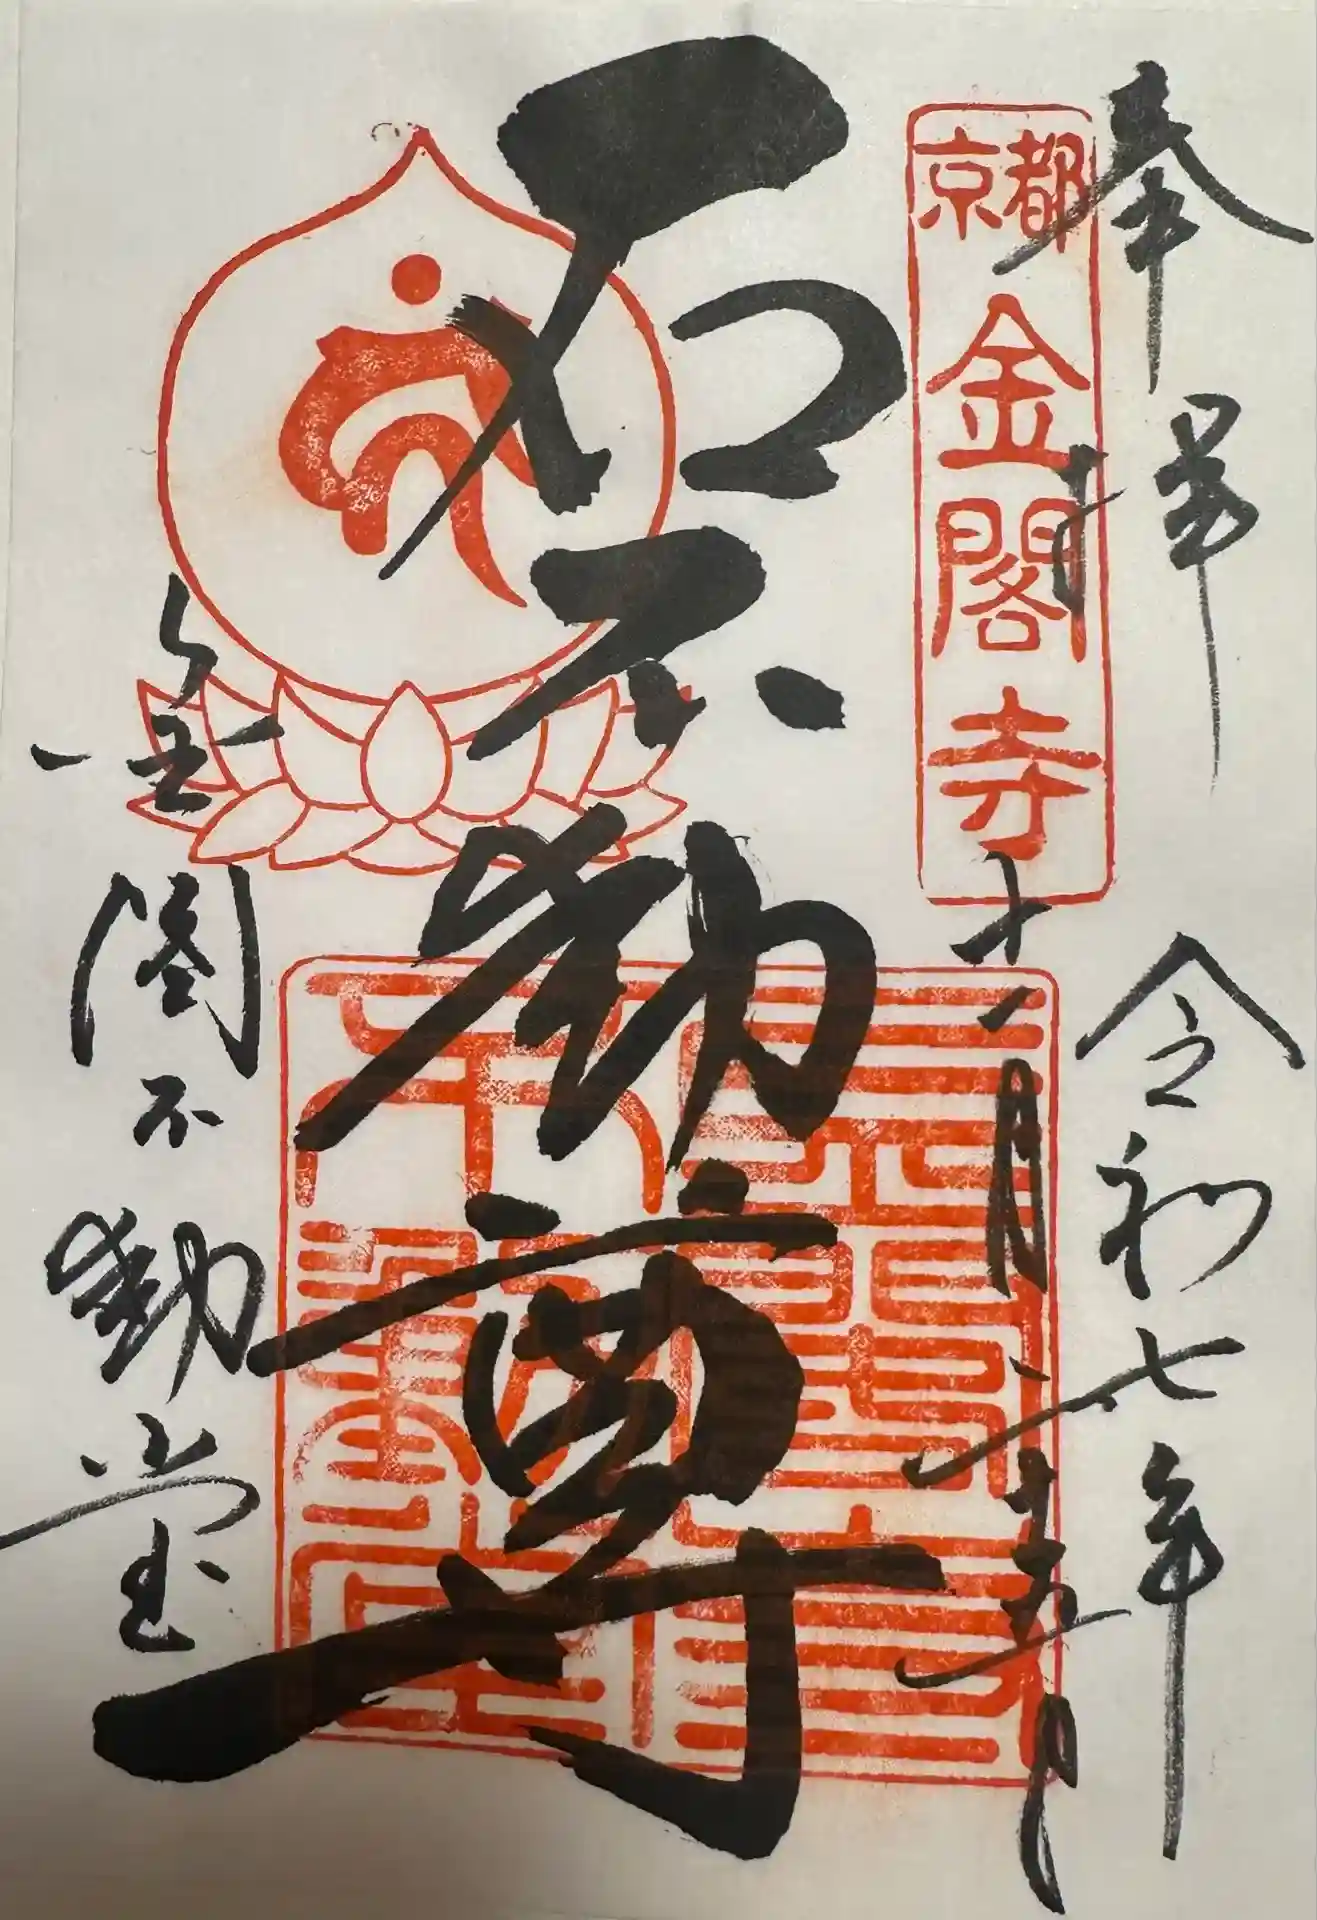 奉拝
令和七年
京都
金閣寺
十一月二十五日
石不動尊
金閣不動堂